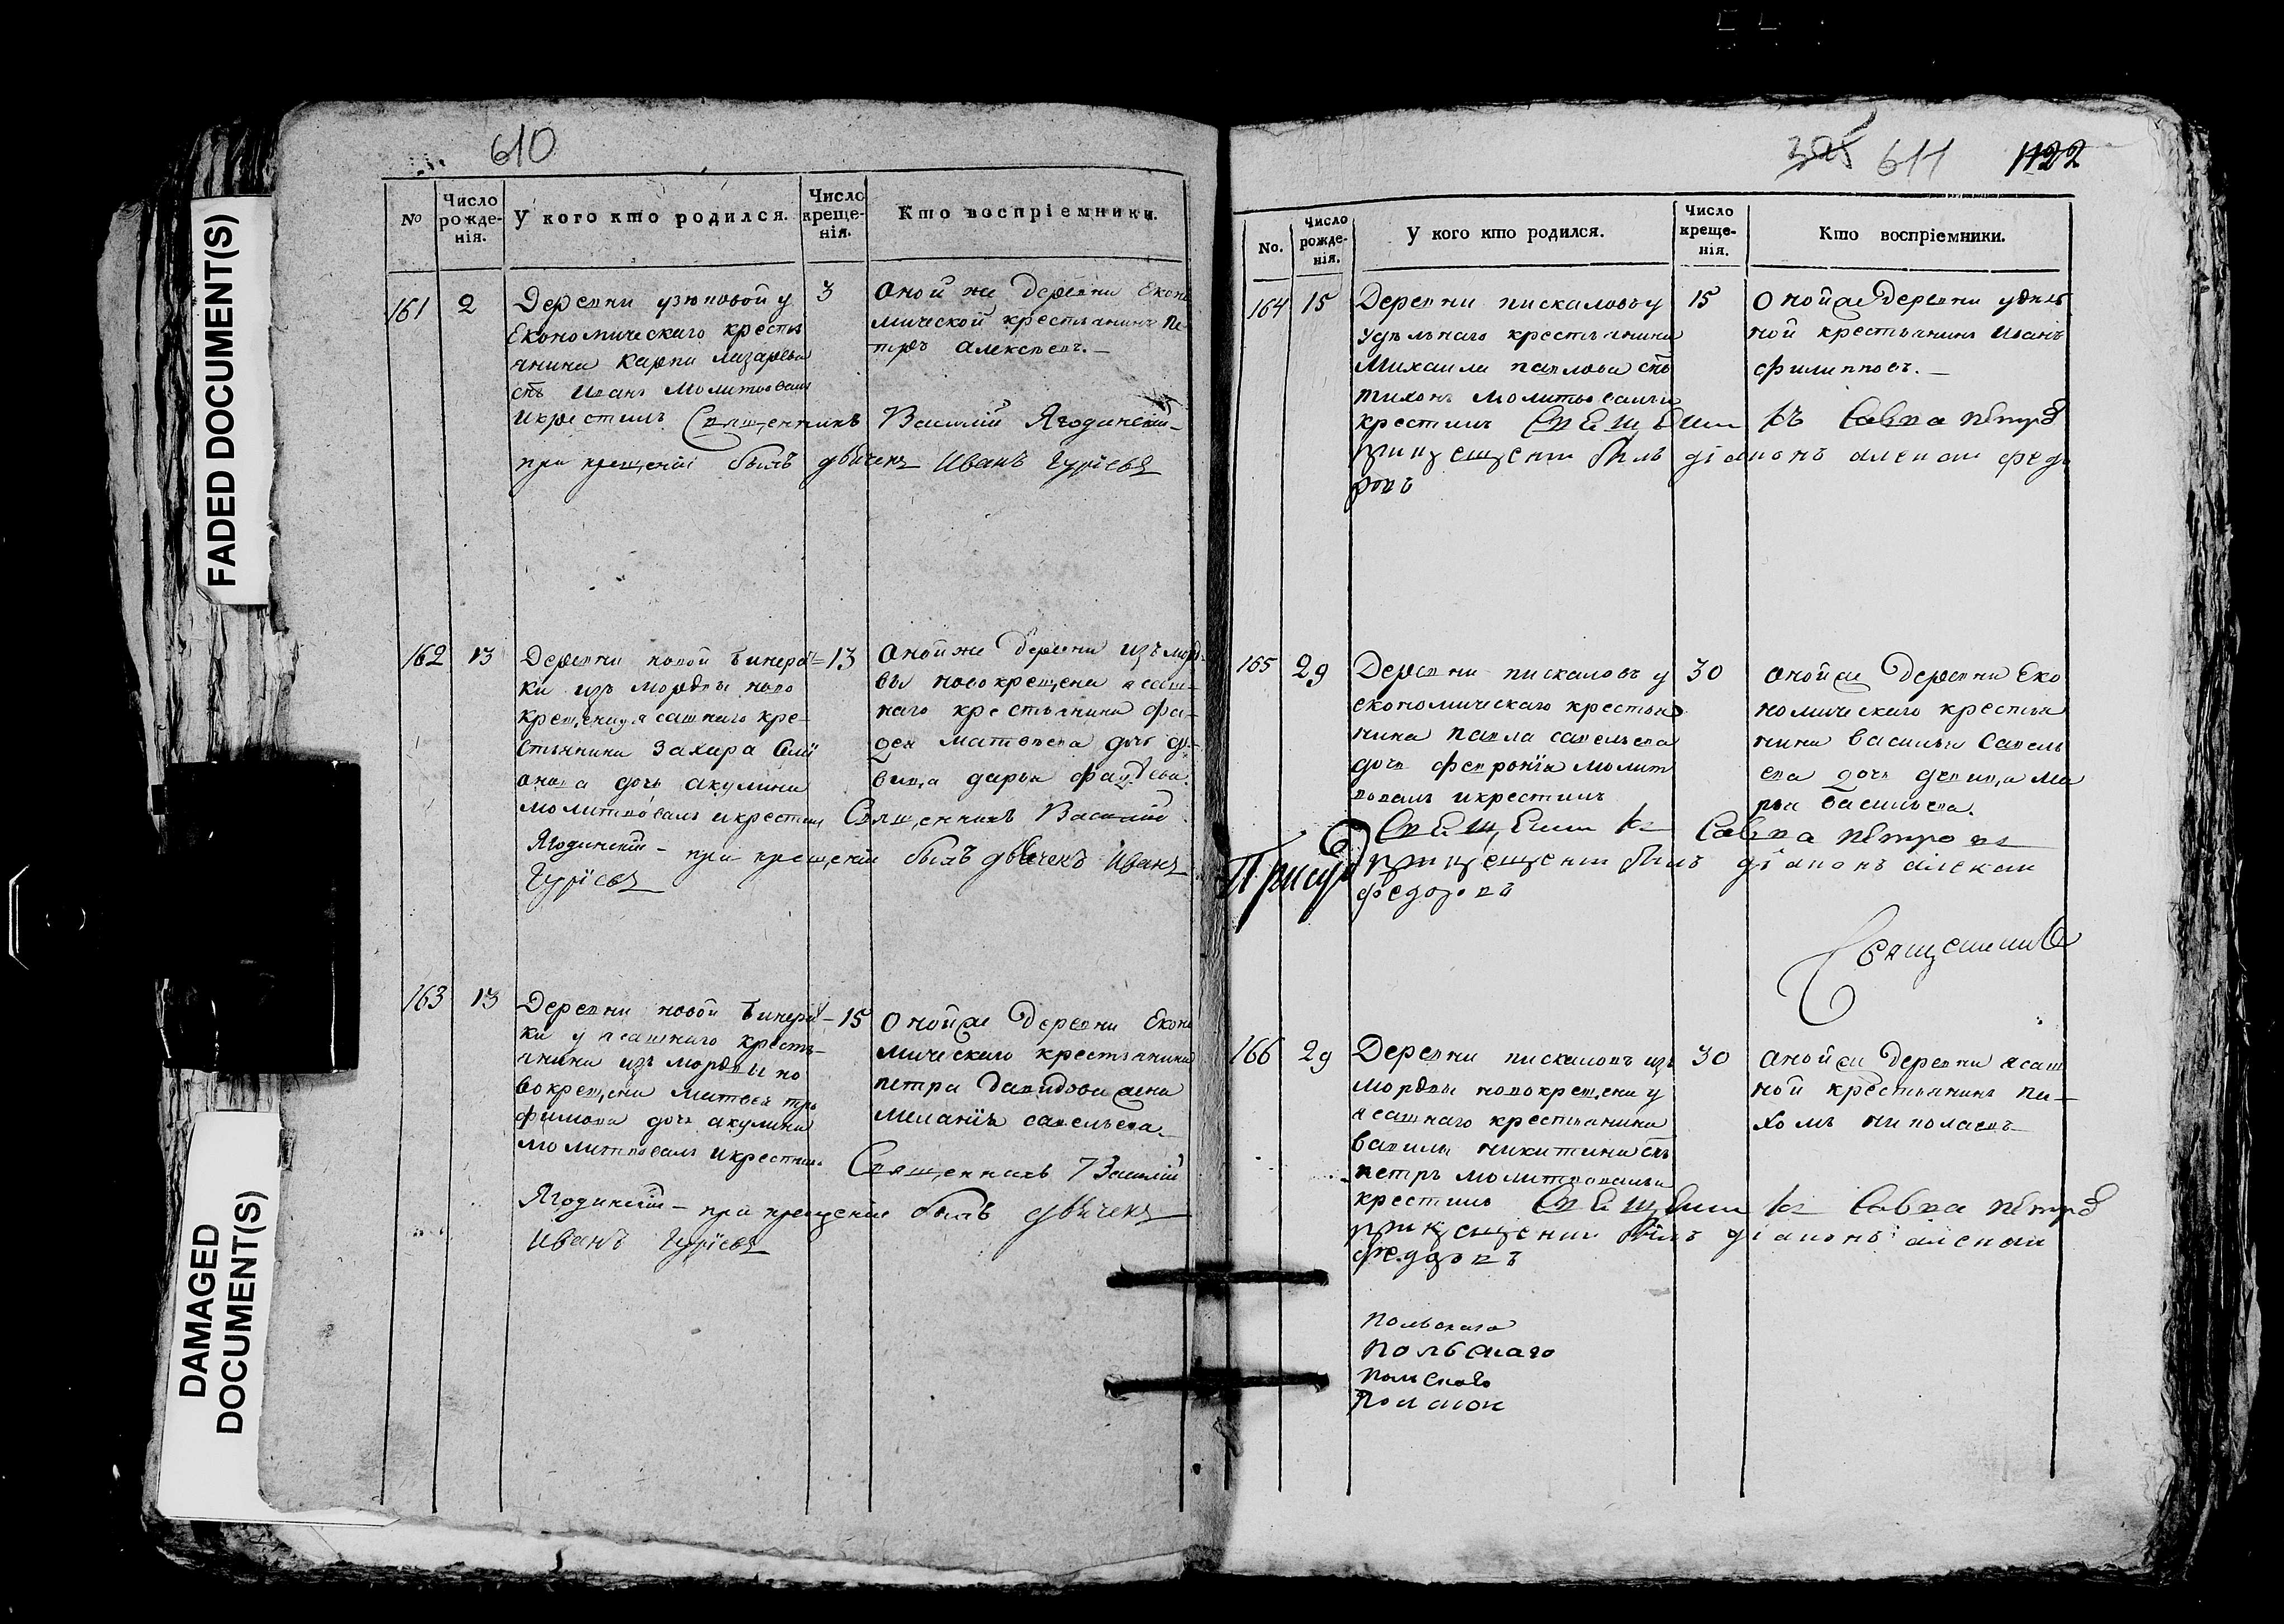 FADED DOCUMENT(S)
DAMAGED
DOCUMENT(S)
610
No
Число рожде-нія.
У кого кто родился.
Число креще-нія.
Кто воспріемники.
161
2
Деревни узюковой у
Економическаго кресть
янина Карпа Лазарева
снъ Иванъ молитвовалъ
и крестилъ Священникъ Василій Ягодинскій
при крещеніи былъ дьячекъ Иванъ Гурьевъ
3
Оной же деревни Еконо
мической крестьянинъ Пе
тръ Алексеевъ.
162
13
Деревни новой бинера
ки изъ мордвы ново
крещена ясашнаго кре-
стьянина Захара
дочь акулина
молитвовалъ и крестилъ Священникъ Василій
Ягодинскій - при крещеніи былъ дьячекъ Иванъ
Гурьевъ
13
Оной же деревни изъ морд
вы новокрещена ясаш-
наго крестьянина фа-
дея матвеева дочь де-
вица дарья фадеева
163
13
Деревни новой бинера
ки у ясашнаго кресть-
янина изъ мордвы но
вокрещена Матвея тро
фимова дочь акулина
молитвовалъ и крестилъ Священникъ Василій
Ягодинскій - при крещеніи былъ дьячекъ
Иванъ Гурьевъ
15
Оной же деревни Еконо
мическаго крестьянина
петра давидова жена
меланія савельева
611 1122
No.
Число рожде-нія.
У кого кто родился.
Число креще-нія.
Кто воспріемники.
164
15
Деревни пискаловъ у
удельнаго крестьянина
Михаила павлова снъ
тихонъ молитвовалъ и
крестилъ Священникъ Савва Петровъ
при крещении былъ діаконъ алексей федо
ровъ
15
Оной же деревни удель
ной крестьянинъ Иванъ
филипповъ.
165
29
Деревни пискаловъ у
економическаго крестья
нина павла савельева
дочь феврония молит
вовалъ и крестилъ
Священникъ Савва Петровъ
при крещении былъ діаконъ алексей
федоровъ
30
Оной же деревни Еко
номическаго крестья
нина василья савель
ева дочь девица ма
рья васильева.
Священникъ
166
29
Деревни пискаловъ изъ
мордвы новокрещена у
ясашнаго крестьянина
василья никитина снъ
петръ молитвовалъ и
крестилъ Священникъ Савва Петровъ
при крещении былъ діаконъ алексей
федоровъ
30
Оной же деревни ясаш
ной крестьянинъ па-
хомъ николаевъ
Польскаго
Польскаго
Польского